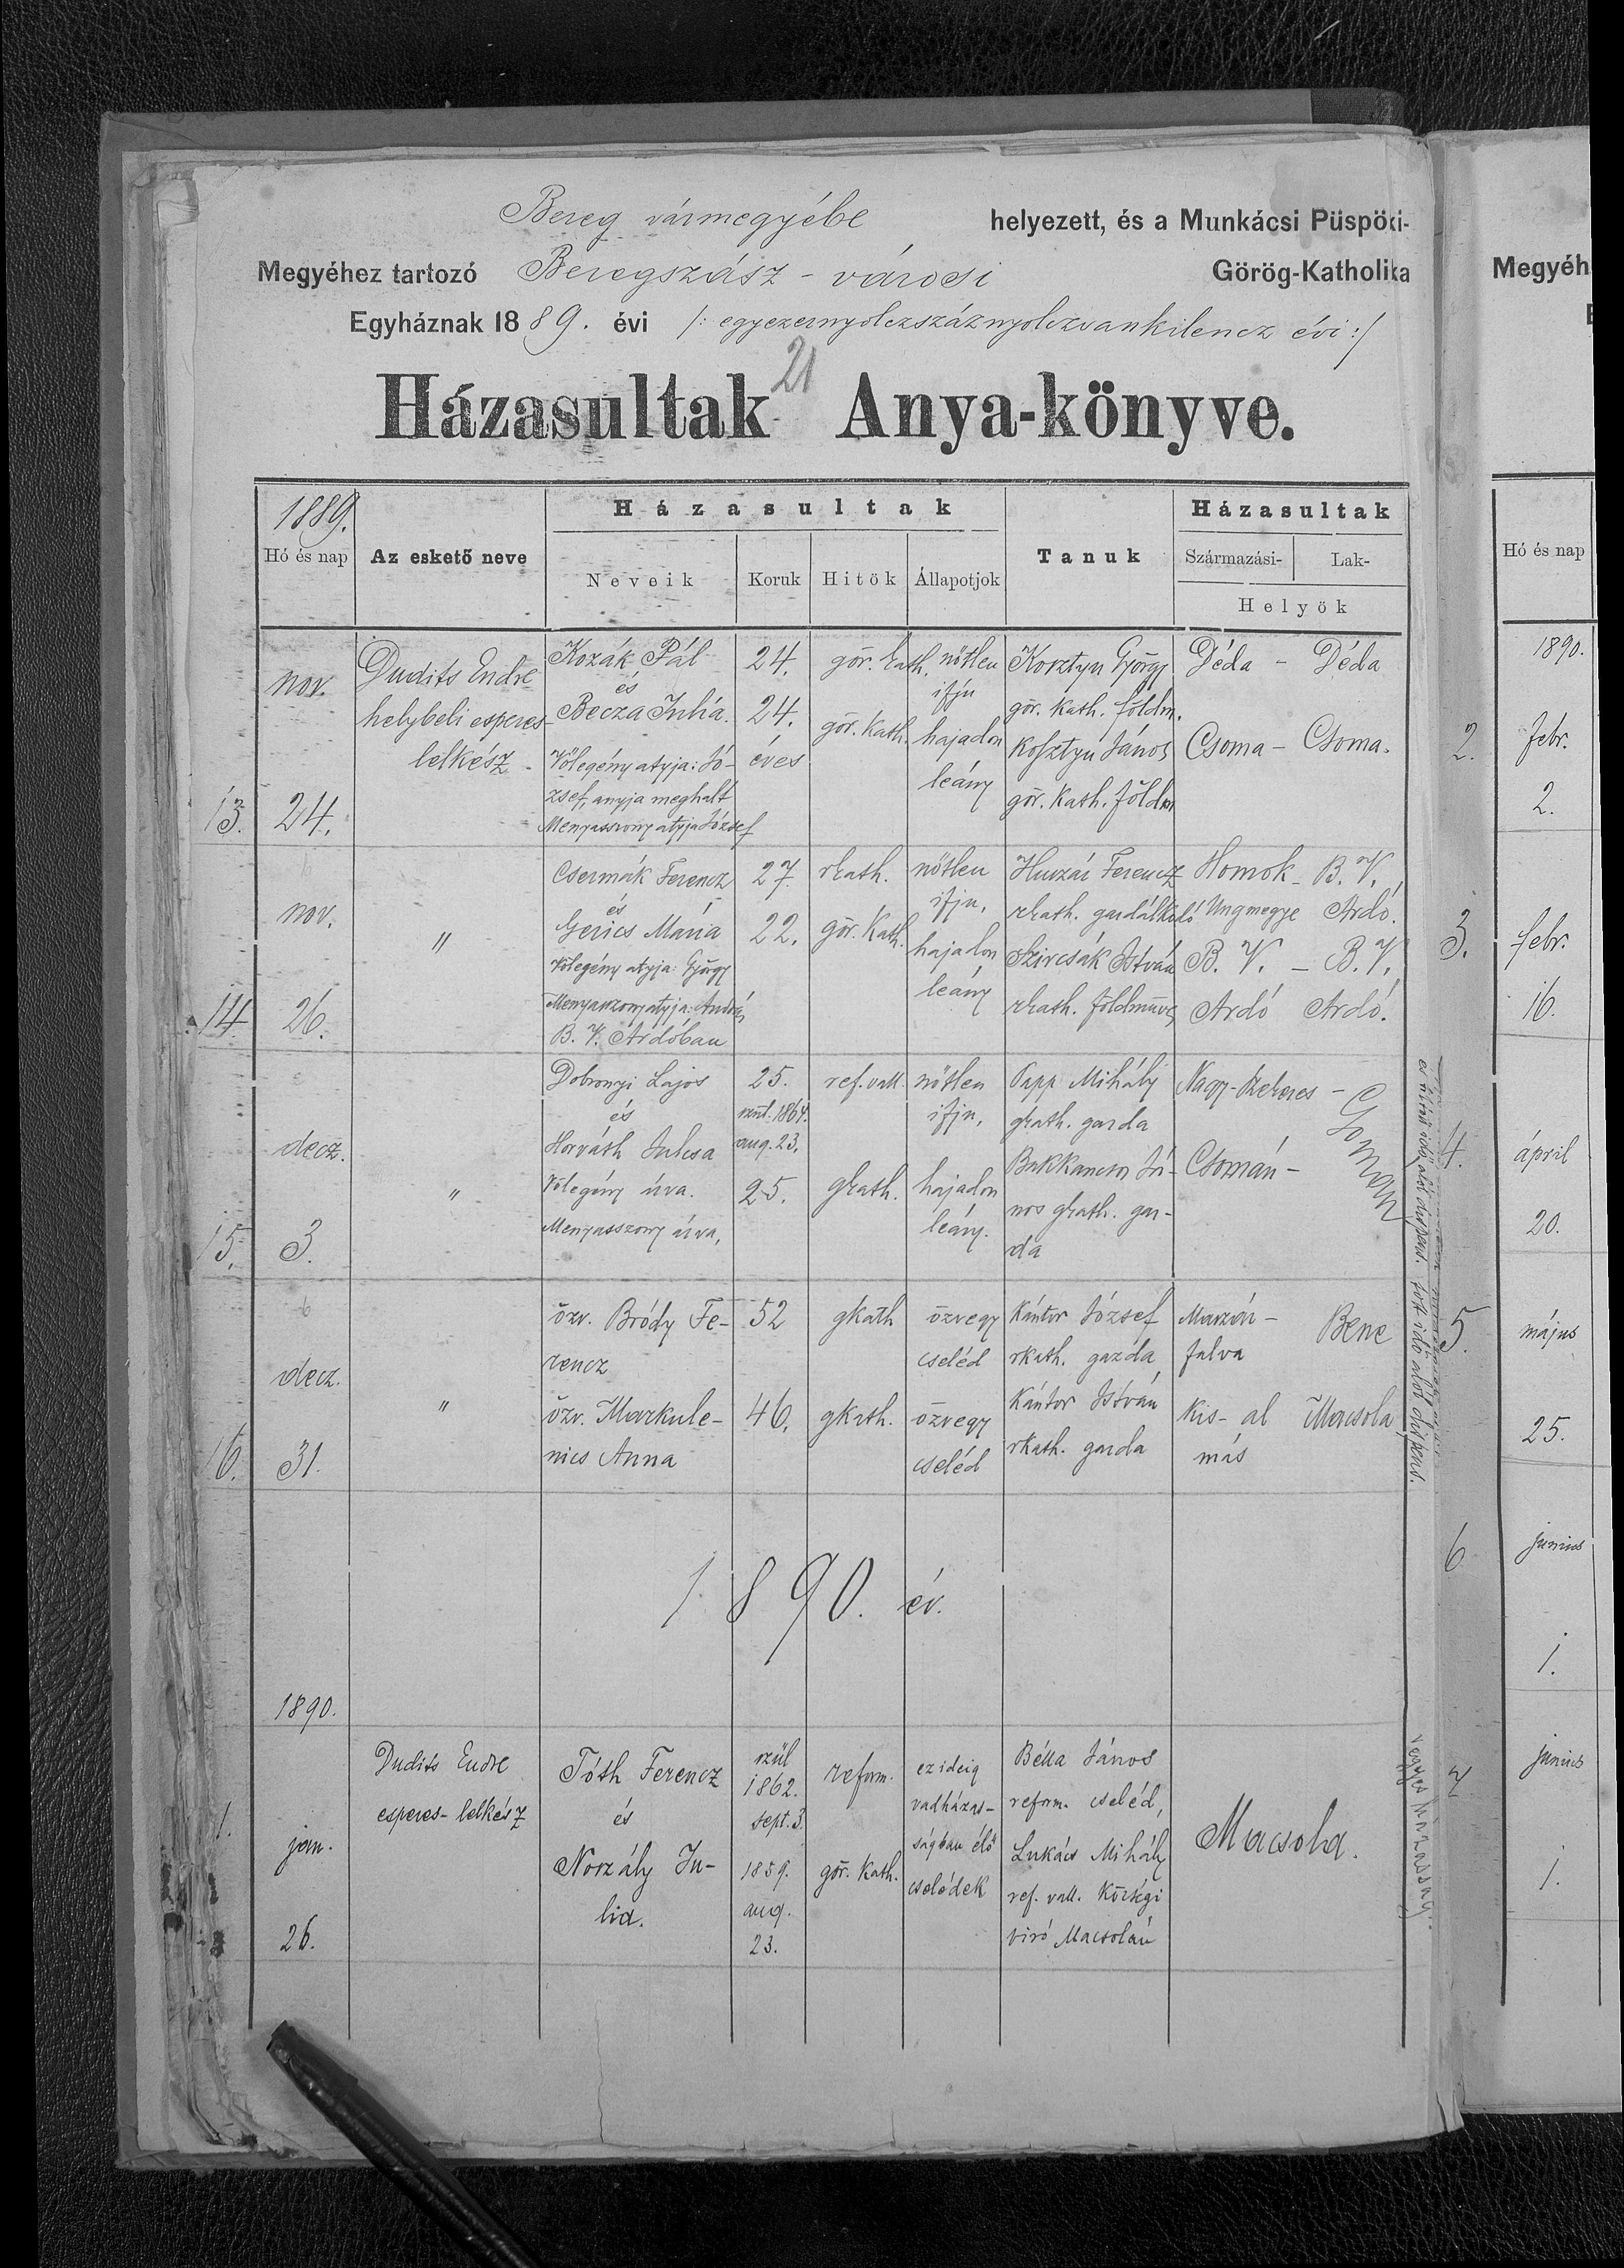 Bereg vármegyébe helyezett, és a Munkácsi Püspöki-
Megyéhez tartozó Beregszász - városi Görög-Katholika
Egyháznak 1889. évi /: egyezernyolczszáznyolczvankilencz évi :/
21
Házasultak Anya-könyve.
1889.
Hó és nap
Az eskető neve
Házasultak
Neveik
Koruk
Hitök
Állapotjok
Tanuk
Házasultak
Származási-
Lak-
Helyök
13.
nov.
24.
Dudits Endre
helybeli esperes-
lelkész
Kozák Pál
és
Becza Julia.
Vőlegény atyja: Jó-
zsef, anyja meghalt
Menyasszony atyja József
24.
24.
éves
gör. kath.
gör. kath.
nőtlen
ifju
hajadon
leány
Kosztyu György
gör. kath. földm.
Kosztyu János
gör. kath. földm
Déda - Déda
Csoma - Csoma.
14
nov.
26.
"
Csermák Ferencz
és
Gerics Mária
Vőlegény atyja: György
Menyasszony atyja: András
B. V. Ardóban
27.
22.
rkath.
gör. kath.
nőtlen
ifju,
hajadon
leány
Huszár Ferencz
rkath. gazdálkodó
Szircsák István
rkath. földműves
Homok - B. V.,
Ungmegye Ardó.
B. V. - B. V.
Ardó Ardó.
15.
decz.
3.
"
Dobronyi Lajos
és
Horváth Julcsa
Vőlegény árva.
Menyasszony árva,
25.
szül. 1864.
aug. 23.
25.
ref. vall.
gkath.
nőtlen
ifju,
hajadon
leány.
Papp Mihály
gkath. gazda
Já-
nos gkath. gaz-
da
Nagy-Szekeres -
Csomán -
Csomán
16.
decz.
31.
"
özv. Bródy Fe-
rencz
özv. Markule-
nics Anna
52
46.
gkath
gkath.
özvegy
cseléd
özvegy
cseléd
Kántor József
rkath. gazda
Kántor István
rkath. gazda
falva
Bene
Kis- al
más
Macsola
1890. év.
1890.
1.
jan.
26.
Dudits Endre
esperes-lelkész
Tóth Ferencz
és
Noszály Ju-
lia.
szül
1862.
sept. 3.
1859.
aug.
23.
reform.
gör. kath.
ez ideig
vadházas-
ságban élő
cselédek
Bélla János
reform. cseléd,
Lukács Mihály
ref. vall. községi
biró Macsolán
Macsola.
vegyes házasság.
Megyéh
Hó és nap
1890.
2.
febr.
2.
3.
febr.
16.
4.
ápril
20.
5.
május
25.
6
junius
1.
7
junius
1.